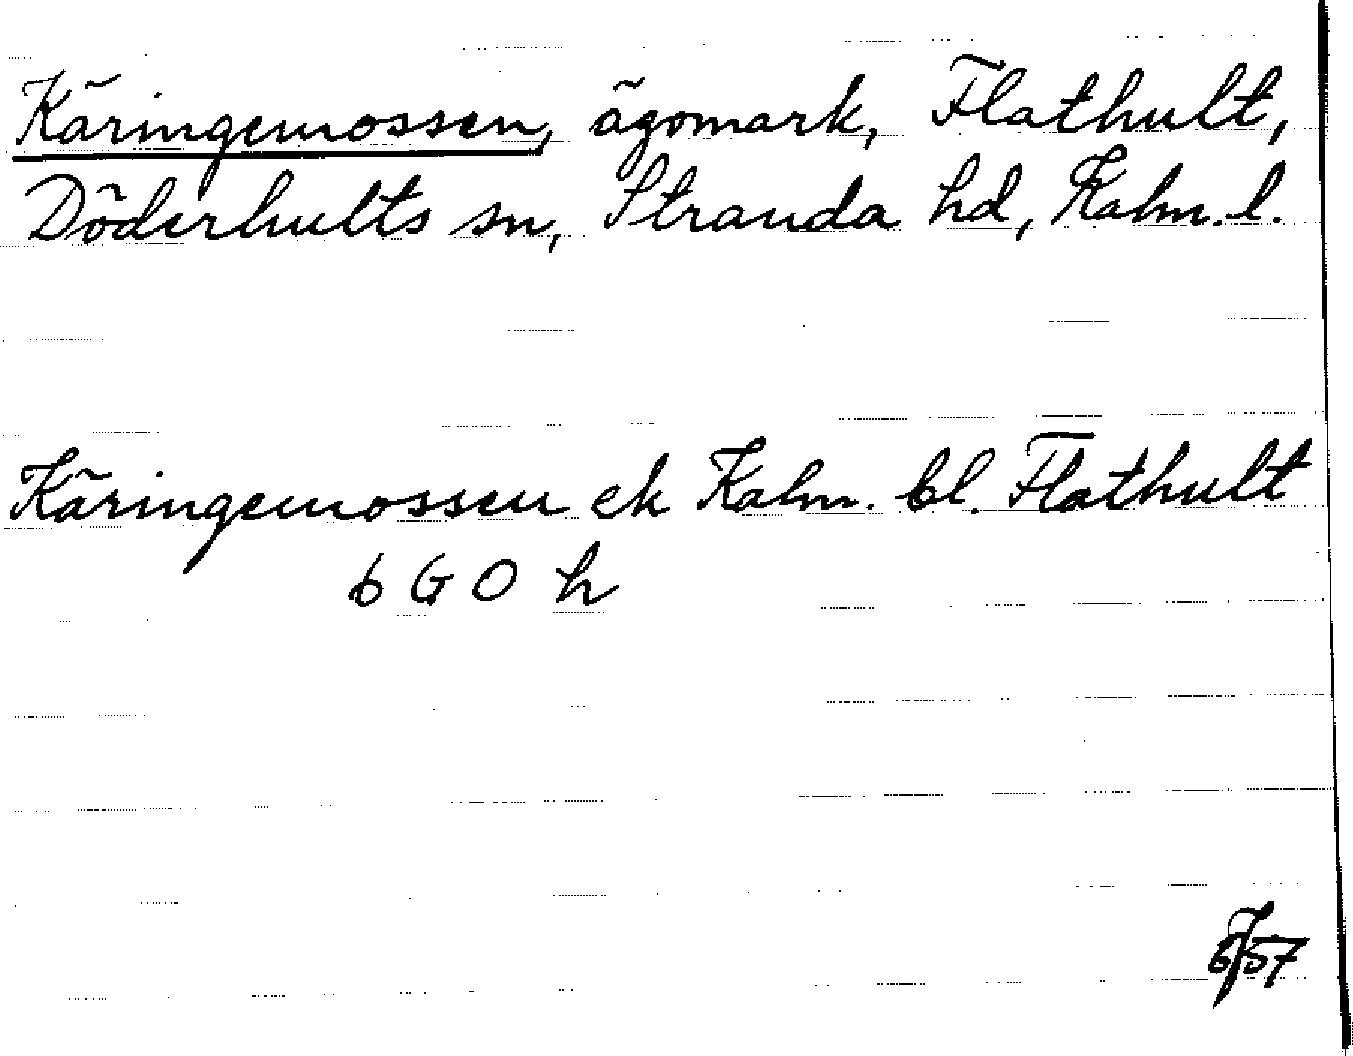 Käringemossen, ägomark, Flathult,
Döderhults sn, Stranda hd, Kalm. l.
Käringemossen ek Kalm. bl. Flathult
6 G O h